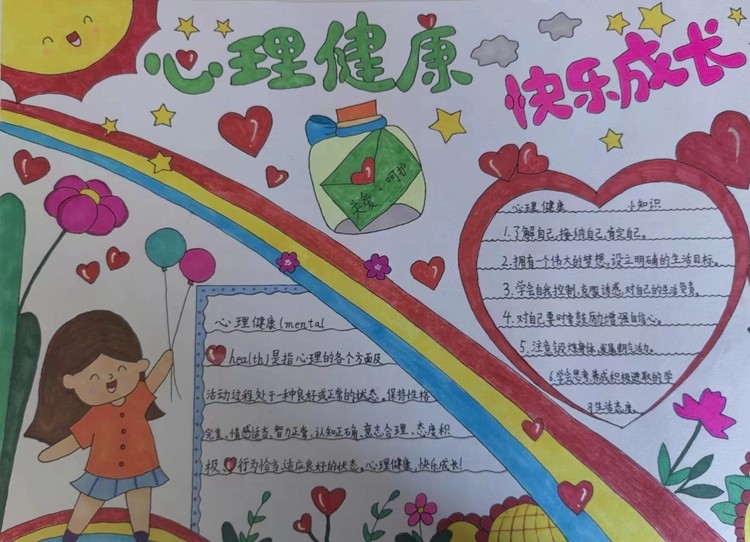 心理健康
快乐成长
关爱·呵护
心理健康 小知识
1.了解自己,接纳自己,肯定自己。
2.拥有一个伟大的梦想,设立明确的生活目标。
3.学会自我控制,克服诱惑,对自己的生活负责。
4.对自己要时常鼓励,增强自信心。
5.注意锻炼身体,
6.学会思考,养成积极进取的学
习生活态度。
心理健康(mental
health)是指心理的各个方面及
活动过程处于一种良好或正常的状态。保持性格
完美、情感适当、智力正常、认知正确、意志合理、态度积
极、行为恰当、适应良好的状态。心理健康,快乐成长!